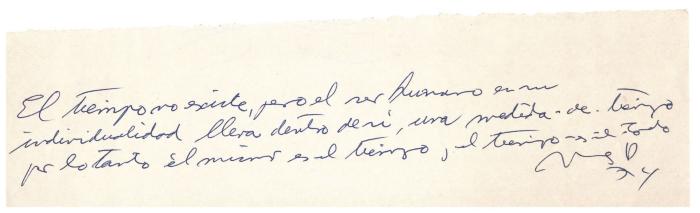 El tiempo no existe, pero el ser humano en su
individualidad lleva dentro de sí, una medida-de-tiempo
por lo tanto él mismo es el tiempo, el tiempo-es-el-todo
74